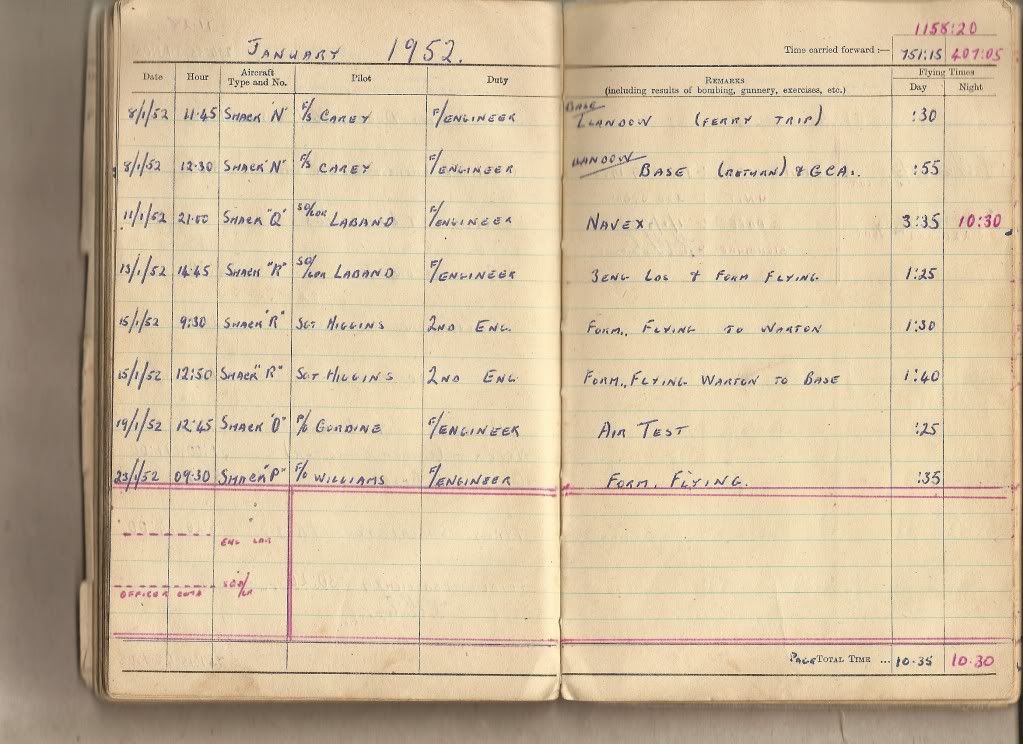 JANUARY 1952.
1158:20
Time carried forward :— 751:15 407:05
Date Hour Aircraft Type and No. Pilot Duty REMARKS (including results of bombing, gunnery, exercises, etc.) Flying Times Day Night
8/1/52 11.45 SHACK "N" F/S CAREY F/ENGINEER BASE LLANDOW (FERRY TRIP) :30
8/1/52 12.30 SHACK "N" F/S CAREY F/ENGINEER LLANDOW BASE (RETURN) & GCA.. :55
11/1/52 21.00 SHACK "Q" SQ/LDR LABAND F/ENGINEER NAVEX 3:35 10:30
13/1/52 14.45 SHACK "R" SQ/LDR LABAND F/ENGINEER 3 ENG LOG & FORM FLYING 1:25
15/1/52 9:30 SHACK "R" SGT HIGGINS 2ND ENG. FORM., FLYING TO WARTON 1:30
15/1/52 12:50 SHACK "R" SGT HIGGINS 2ND ENG FORM., FLYING WARTON TO BASE 1:40
19/1/52 12.45 SHACK "O" P/O GORDINE F/ENGINEER AIR TEST :25
23/1/52 09.30 SHACK "P" F/O WILLIAMS F/ENGINEER FORM. FLYING. :35
ENG LDR
OFFICER COMD SQD/LR
PAGE TOTAL TIME ... 10.35 10.30